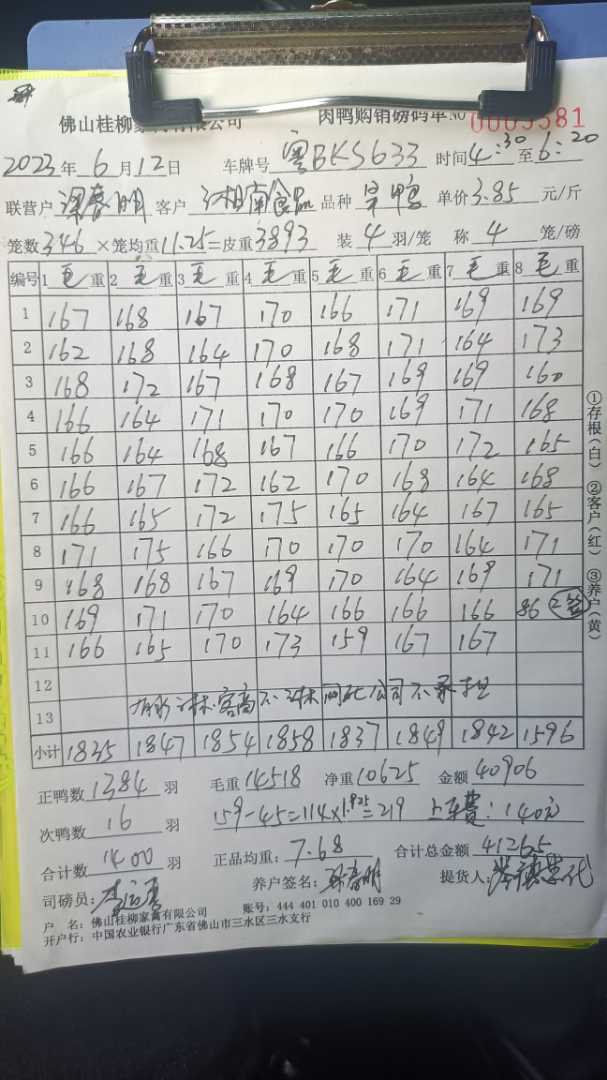 佛山桂柳家禽有限公司 肉鸭购销磅码单 NO 0003381
2023年6月12日 车牌号 粤BKS633 时间4:30至6:20
联营户 明 客户 湘南食品 品种 鸭 单价3.85元/斤
笼数346×笼均重11.25=皮重3893 装4羽/笼 称4笼/磅
编号 1毛重 2毛重 3毛重 4毛重 5毛重 6毛重 7毛重 8毛重
1 167 168 167 170 166 171 169 169
2 162 168 164 170 168 171 164 173
3 168 172 167 168 167 169 169 160
4 166 164 171 170 170 169 171 168
5 166 164 168 167 166 170 172 165
6 166 167 172 162 170 168 164 168
7 166 165 172 175 165 164 167 165
8 171 175 166 170 170 170 164 171
9 168 168 167 169 170 164 169 171
10 169 171 170 164 166 166 166 86 2笼
11 166 165 170 173 159 167 167
12
13 公司不承担
小计 1835 1847 1854 1858 1837 1849 1842 1596
正鸭数1384羽 毛重14518 净重10625 金额40906
次鸭数16羽 159-45=114×1.925=219 上车费:140元
合计数1400羽 正品均重:7.68 合计总金额41265
司磅员: 养户签名: 明 提货人: 代
户 名:佛山桂柳家禽有限公司 账号:444 401 010 400 169 29
开户行:中国农业银行广东省佛山市三水区三水支行
①存根(白) ②客户(红) ③养户(黄)